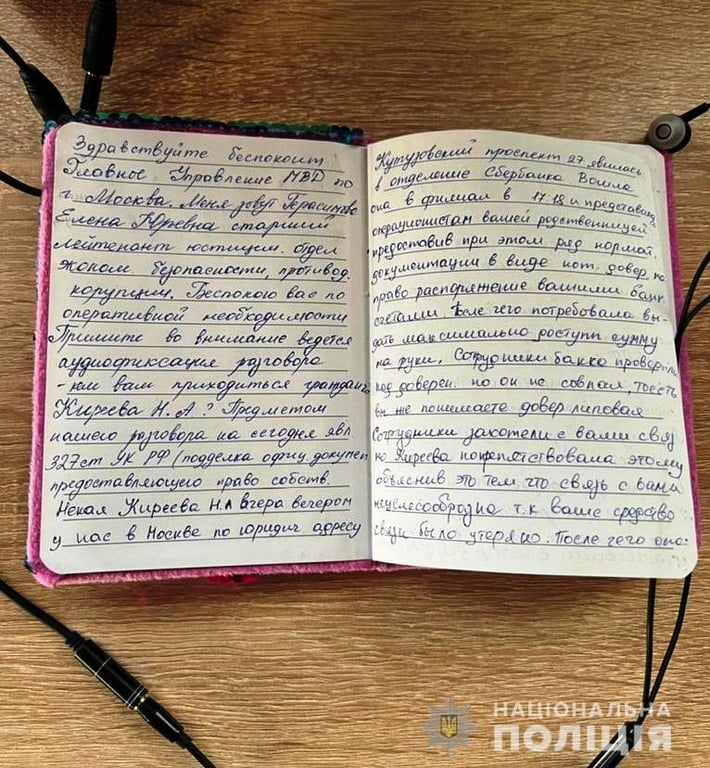 Здравствуйте беспокоит
Главное Управление МВД по
г. Москва. Меня зовут Герасимово
Елена Юревна старший
лейтенант юстиции. отдел
эконом. безопасности, противод.
корупции. Беспокою вас по
оперативной необходимости
Примите во внимание ведется
аудиофиксация разговора
- кем вам приходиться граждан
Киреева Н. А? Предметом
нашего разговора на сегодня явл.
327 ст УК РФ (подделка офиц. докумен
предоставляющего право собств.
Некая Киреева Н.А вчера вечером
у нас в Москве по юридич адресу
Кутузовский проспект 27 явилась
в отделение Сбербанка Вошла
она в филиал в 17:18 и представила
операционистам вашей родственницей
предоставив при этом ряд нормат.
документации в виде нот. довер. на
право распоряжение вашими банк.
счетами После чего потребовала вы-
дать максимально доступн сумму
на руки. Сотрудники банка проверили
код доверен. но он не совпал, тоесть
вы же понимаете довер липовая
Сотрудники захотели с вами связ
но Киреева попрепятствовала этому
объяснив это тем что связь с вами
нецелесообразно т.к ваше средство
связи было утеряно. После чего она:
НАЦІОНАЛЬНА
ПОЛІЦІЯ